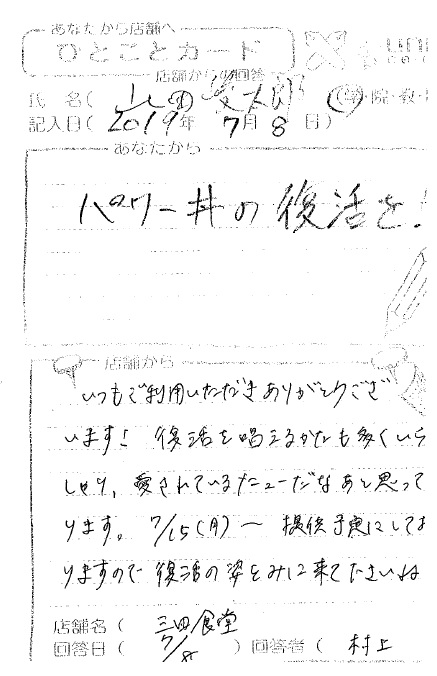 あなたから店舗へ
ひとことカード
店舗からの回答
氏 名( 山田愛太郎 (学・院・教・
記入日( 2019年 7月 8日)
あなたから
パワー丼の復活を!
店舗から
いつもご利用いただきありがとうござ
います! 復活を唱えるかたも多くいら
しゃり、愛されているメニューだなあと思って
ります。 7/15(月)〜 提供予定にしてお
りますので復活の姿をみに来てくださいね
店舗名( 三田食堂
回答日( 7/8 ) 回答者( 村上